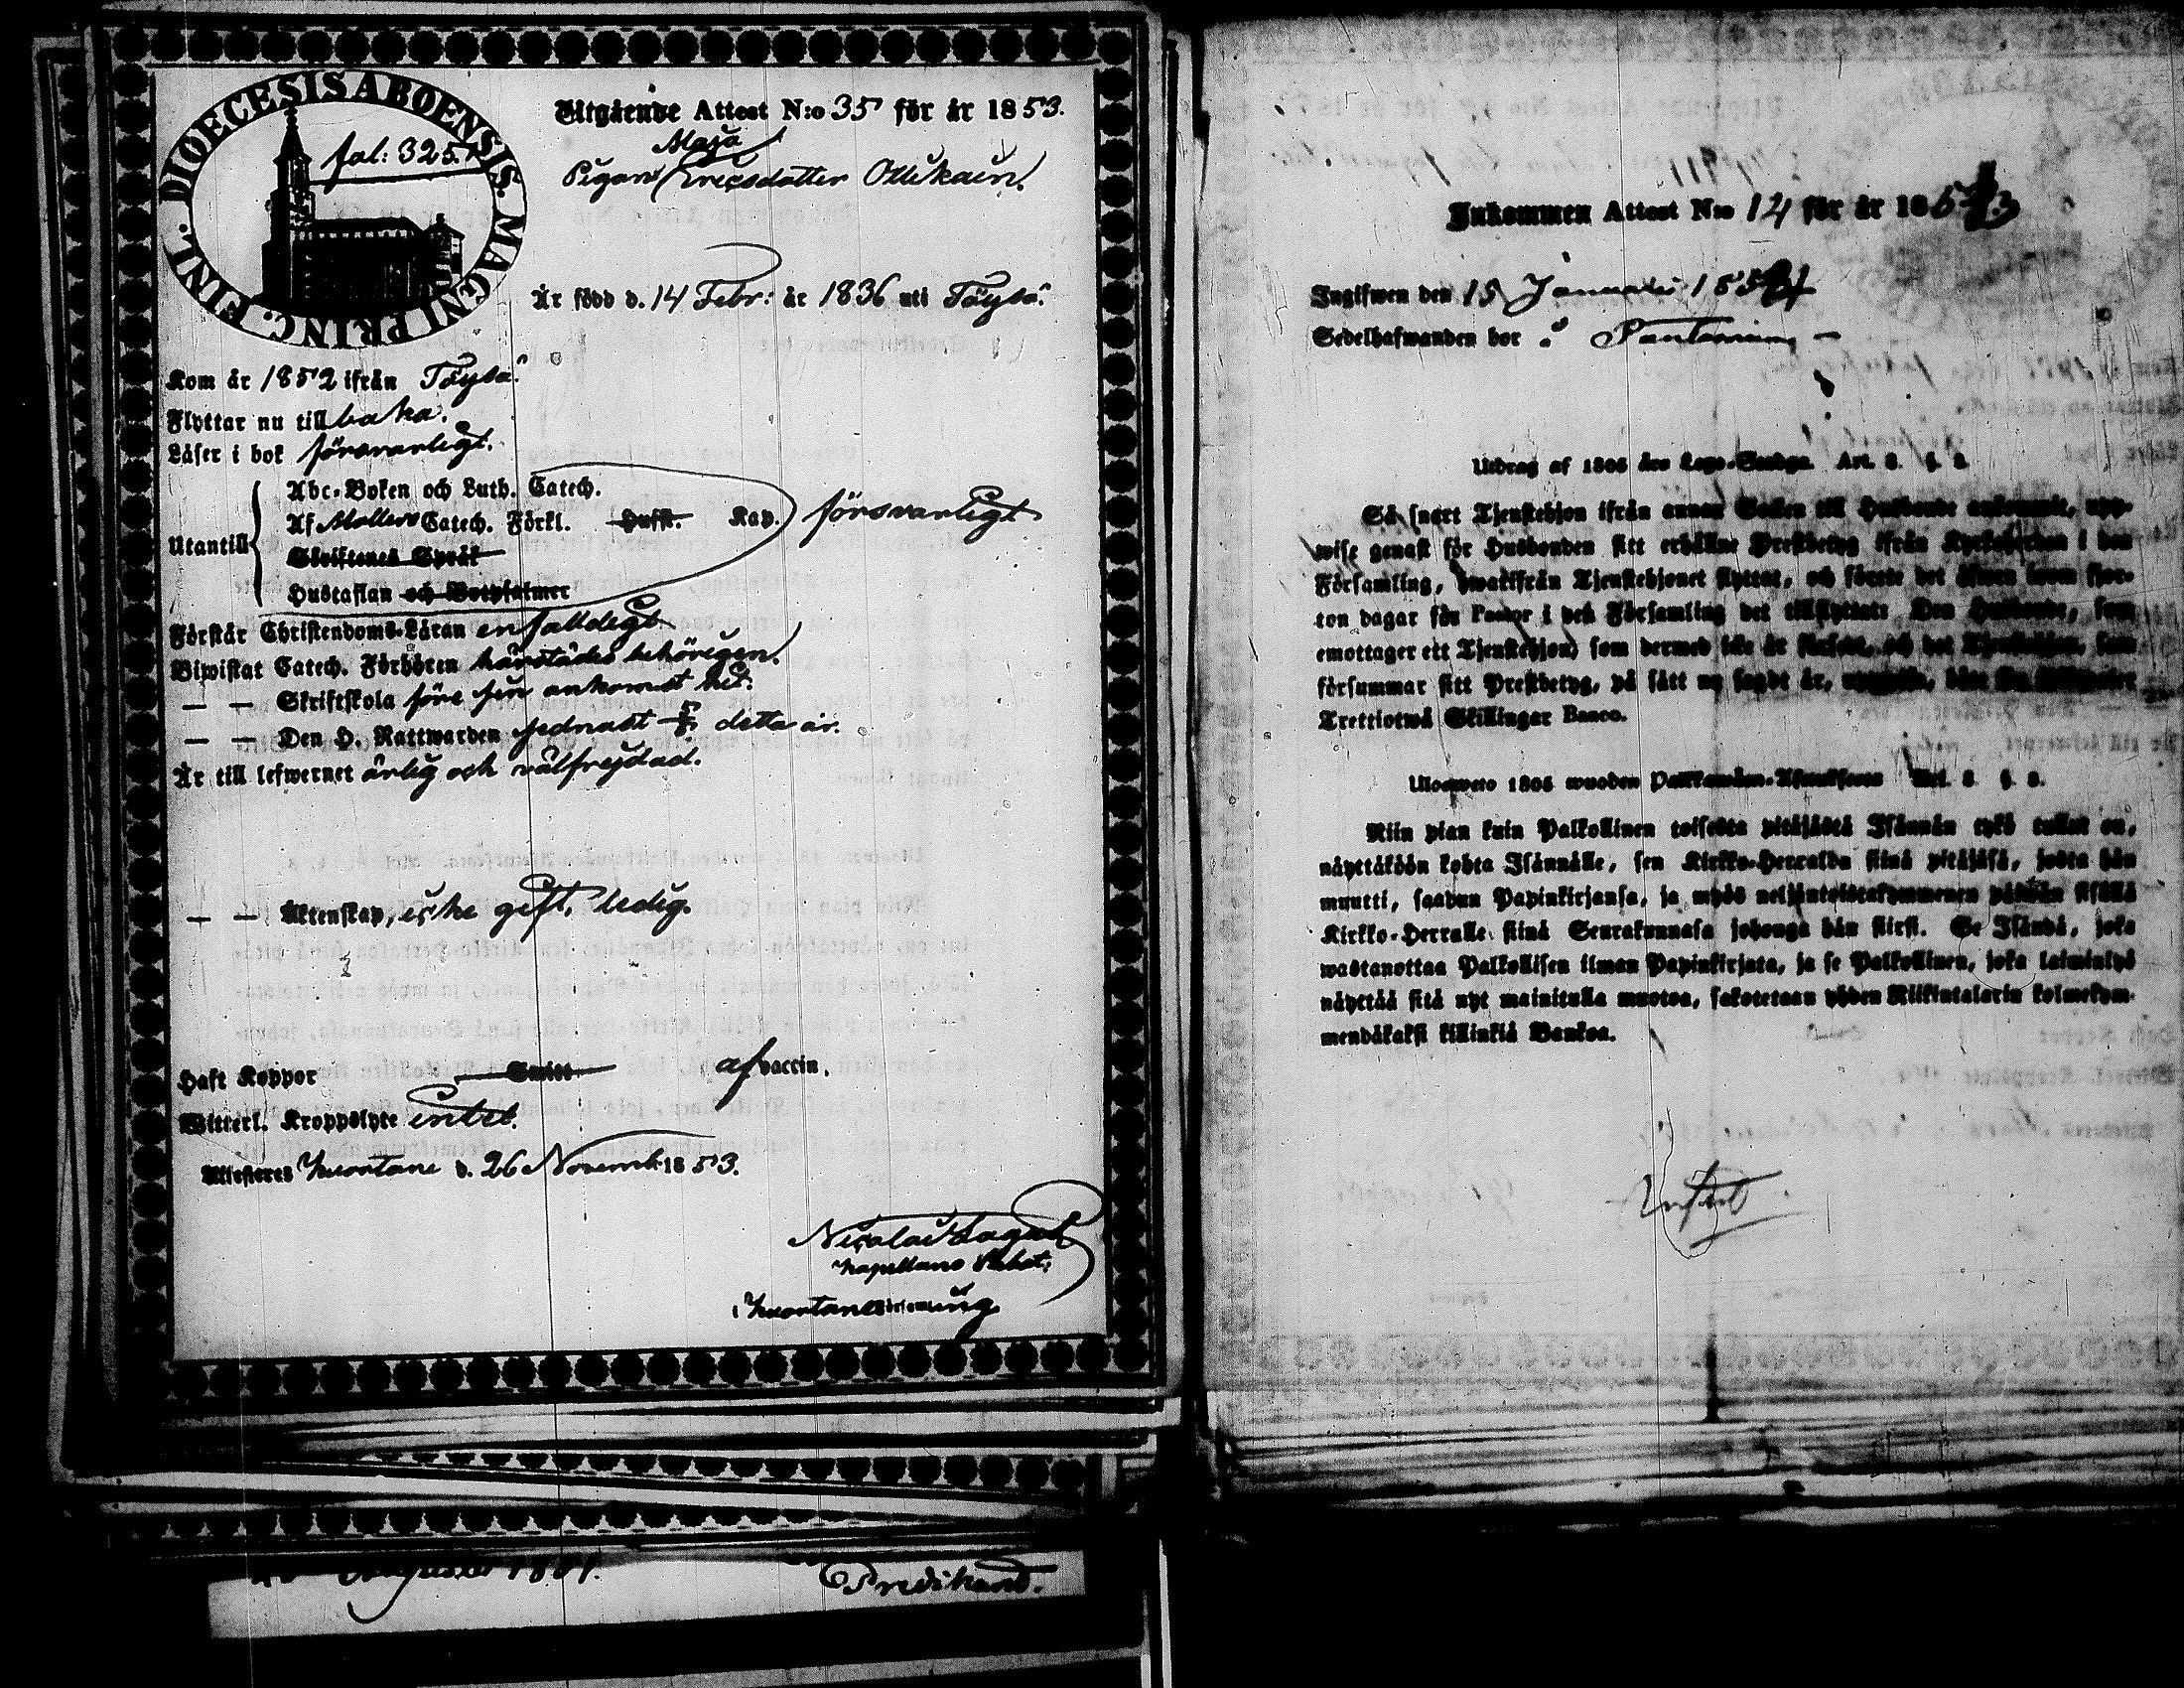 DIOECESIS ABOENSIS. MAGNI PRINC. FINL.
fol: 325.
Utgående Attest N:o 35 för år 1853.
Maja
Pigan Ericsdotter Ollikain.
Är född d. 14 Febr: år 1836 uti Töysä.
Kom år 1852 ifrån Töysä.
Flyttar nu till baka.
Läser i bok försvarligt.
Utantill
Abc-Boken och Luth. Catech.
Af Möllers Catech. Förkl. Huffl. Kap.
Skriftenes Språk
Hustaflan och Botpsalmer
försvarligt
Förstår Christendoms-Läran enfalldigt
Biwistat Catech. Förhören härstädes behörigen.
— — Skriftskola före sin ankomst hit.
— — Den H. Nattwarden sednast detta år.
Är till lefwernet ärlig och välfrejdad.
— — Äktenskap, icke gift, ledig.
Haft Koppor Smitt af vaccin.
Witterl. Kroppslyte intet.
Attesteras Kuortane d. 26 Novemb. 1853.
Nicolai
Kapellans
i Kuortane församling
1851.
Inkommen Attest N:o 14 för år 185
Ingifwen den 15 Januari 1854
Sedelhafwanden bor å
Utdrag af 1805 års Lego-Stadga. Art. 8. §. 8.
Så snart Tjenstehjon ifrån annan Socken till Husbonde ankommit, upp-
wise genast för Husbonden sitt erhållne Prestbetyg ifrån Kyrkoherden i den
Församling, hwarifrån Tjenstehjonet flyttat, och förete det äfwen inom fjor-
ton dagar för Pastor i den Församling det tillflyttat: Den Husbonde, som
emottager ett Tjenstehjon, som dermed icke är försedt, och det Tjenstehjon, som
försummar sitt Prestbetyg, på sätt nu sagdt är,
Trettiotwå Skillingar Banco.
Uloswero 1805 wuoden Palkkawäen-Asetuksesta Art. 8. §. 8.
Niin pian kuin Palkollinen toisesta pitäjästä Isännän tykö tullut on,
näyttäköön kohta Isännälle, sen Kirkko-Herralda siinä pitäjäsä, josta hän
muutti, saadun Papinkirjansa, ja myös neljäntoistakymmenen päiwän sisällä
Kirkko-Herralle siinä Seurakunnasa johonga hän siirsi. Se Isändä, joka
wastanottaa Palkollisen ilman Papinkirjata, ja se Palkollinen, joka laiminlyö
näyttää sitä nyt mainitulla muotoa, sakotetaan yhden Riikintalarin kolmekym-
mendäkaksi killinkiä Bankoa.